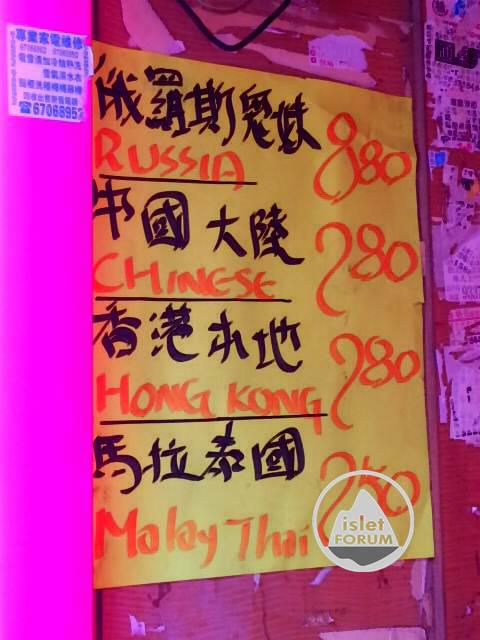 專業家電維修
67068952
俄羅斯鬼妹
RUSSIA
880
中國大陸
CHINESE
280
香港本地
HONG KONG
280
馬拉泰國
Malay Thai
250
islet
FORUM